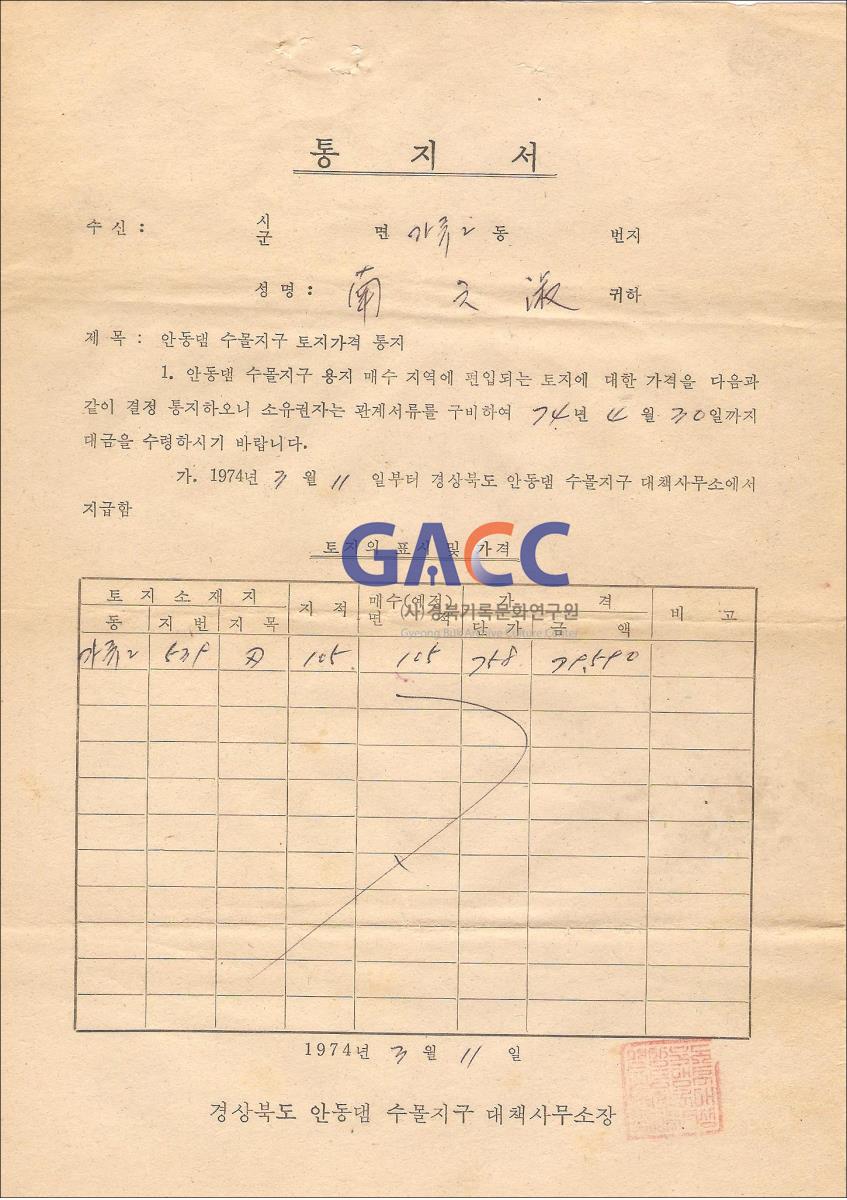 통 지 서
수 신 : 시 군 면 가류2 동 번지
성 명 : 南 淑 귀하
제 목 : 안동댐 수몰지구 토지가격 통지
1. 안동댐 수몰지구 용지 매수 지역에 편입되는 토지에 대한 가격을 다음과
같이 결정 통지하오니 소유권자는 관계서류를 구비하여 74년 4월 30일까지
대금을 수령하시기 바랍니다.
가. 1974년 3월 11일부터 경상북도 안동댐 수몰지구 대책사무소에서
지급함
토지의 표시 및 가격
GACC
(사)경북기록문화연구원
Gyeong Buk Archive Culture Center
토 지 소 재 지 지 적 매수(예정) 면 적 가 격 비 고
동 지 번 지 목 단 가 금 액
가류2 539 105 105 758 79,590
1974년 3월 11일
경상북도 안동댐 수몰지구 대책사무소장